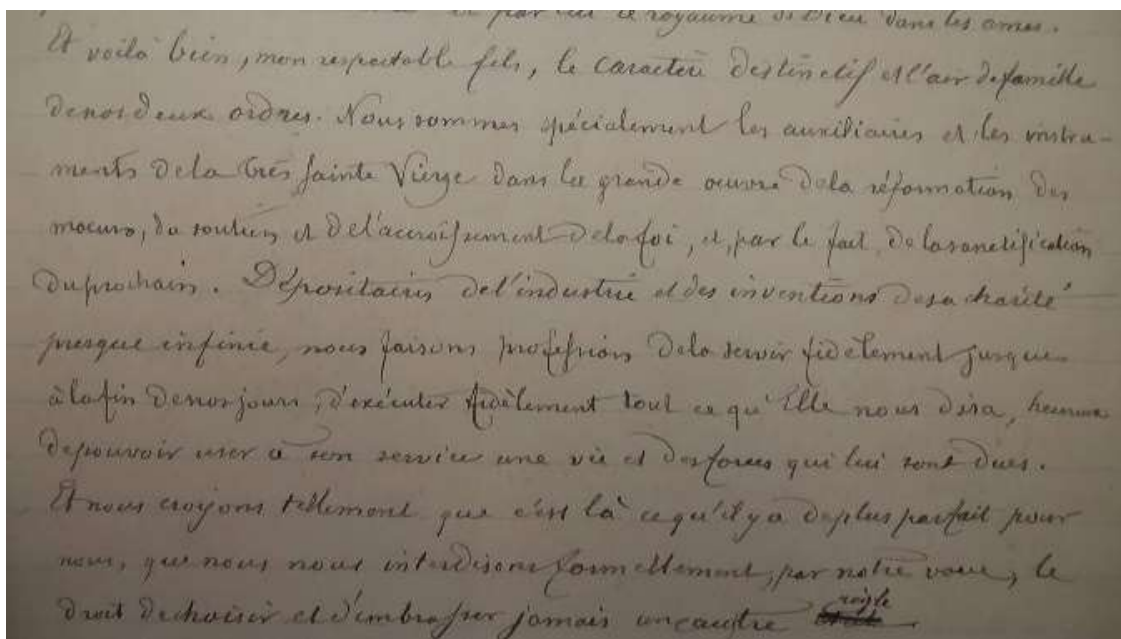 et par lui le royaume de Dieu dans les âmes.
Et voilà bien, mon respectable fils, le caractère distinctif et l'air de famille
de nos deux ordres. Nous sommes spécialement les auxiliaires et les instru-
ments de la très sainte Vierge dans la grande œuvre de la réformation des
mœurs, du soutien et de l'accroissement de la foi, et, par le fait, de la sanctification
du prochain. Dépositaires de l'industrie et des inventions de sa charité
presque infinie, nous faisons profession de la servir fidèlement jusque
à la fin de nos jours, d'exécuter fidèlement tout ce qu'Elle nous dira, heureux
de pouvoir user à son service une vie et des forces qui lui sont dues.
Et nous croyons tellement que c'est là ce qu'il y a de plus parfait pour
nous, que nous nous interdisons formellement, par notre vœu, le
droit de choisir et d'embrasser jamais une autre règle